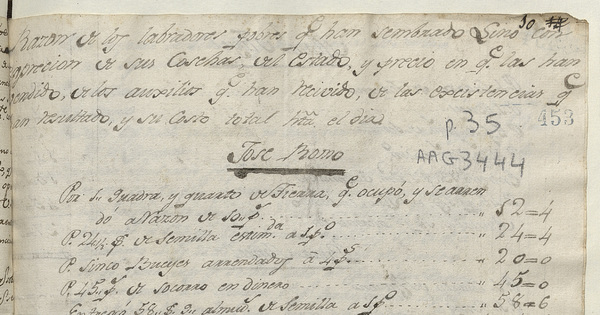 30
Razon de los labradores pobres q.e han sembrado Lino con
exprecion de sus Cosechas, del Estado, y precio en q.e las han
vendido, de los auxilios q.e han recivido, de las excistencias q.e
an resultado, y su Costo total hta. el dia
p. 35
453
Jose Romo
AAG3444
Por su quadra, y quarto de Tierra, q.e ocupó, y se arren
dó a razon de
52=4
P. 24 de semilla estim.da a
24=4
P. Sinco Bueyes arrendados á 4 p.s
20=0
P. 45 p.s de socorro en dinero
45=0
Entregó 58 almud.s de Semilla a
58=6